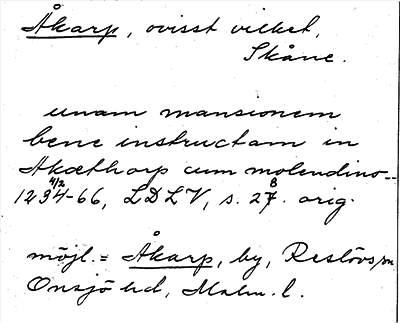 Åkarp, ovisst vilket,
Skåne.
unam mansionem
bene instructam in
Akæthorp cum molendino--
1234-66, LDLV, s. 27. orig.
möjl. = Åkarp, by, Reslövs sn
Onsjö hd, Malm. l.